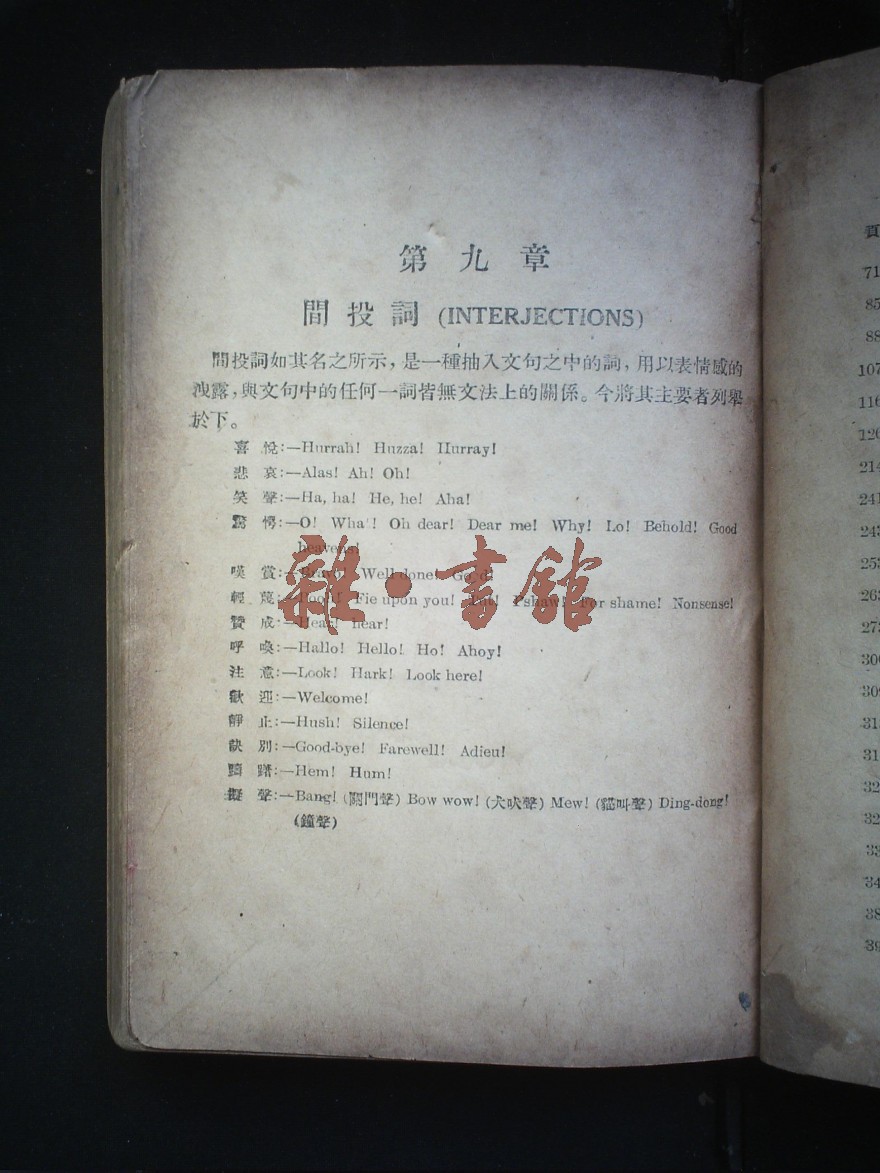 第九章
間投詞 (INTERJECTIONS)
間投詞如其名之所示，是一種抽入文句之中的詞，用以表情感的
洩露，與文句中的任何一詞皆無文法上的關係。今將其主要者列舉
於下。
喜悅:—Hurrah! Huzza! Hurray!
悲哀:—Alas! Ah! Oh!
笑聲:—Ha, ha! He, he! Aha!
驚愕:—O! What! Oh dear! Dear me! Why! Lo! Behold! Good
heavens!
嘆賞:—Bravo! Well done! Good!
輕蔑:—Pooh! Fie upon you! Tut! Pshaw! For shame! Nonsense!
贊成:—Hear! hear!
呼喚:—Hallo! Hello! Ho! Ahoy!
注意:—Look! Hark! Look here!
歡迎:—Welcome!
靜止:—Hush! Silence!
訣別:—Good-bye! Farewell! Adieu!
躊躇:—Hem! Hum!
擬聲:—Bang! (關門聲) Bow wow! (犬吠聲) Mew! (貓叫聲) Ding-dong!
(鐘聲)
雜·書館
頁
71
85
88
107
116
126
214
241
243
253
263
273
300
309
31
31
32
32
33
34
38
39